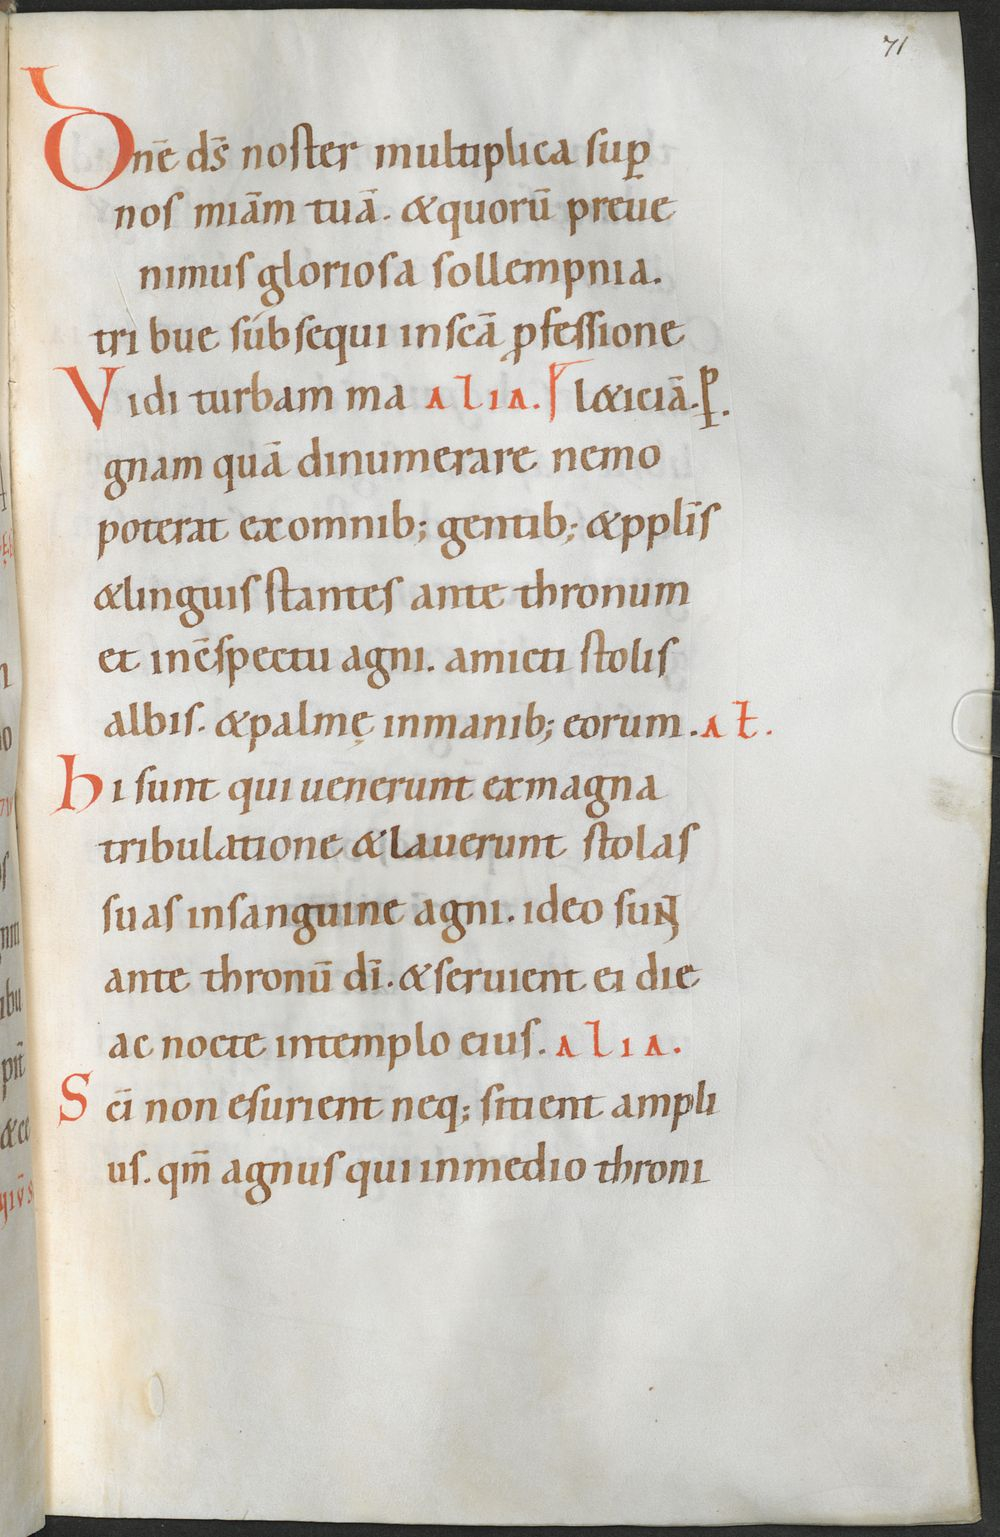 71
Dn̄e ds̄ noster multiplica sup̱
nos miām tuā. &quorū preue
nimus gloriosa sollempnia.
tribue subsequi inscā ꝓfessione
Vidi turbam ma ALIA. l&iciā. ꝑ.
gnam quā dinumerare nemo
poterat exomnib; gentib; &pplīs
&linguis stantes ante thronum
et inc̄spectu agni. amicti stolis
albis. &palmę inmanib; eorum. Ał.
hi sunt qui uenerunt exmagna
tribulatione &lauerunt stolas
suas insanguine agni. ideo sunt
ante thronū dī. &seruient ei die
ac nocte intemplo eius. ALIA.
Scī non esurient neq; sitient ampli
us. qm̄ agnus qui inmedio throni